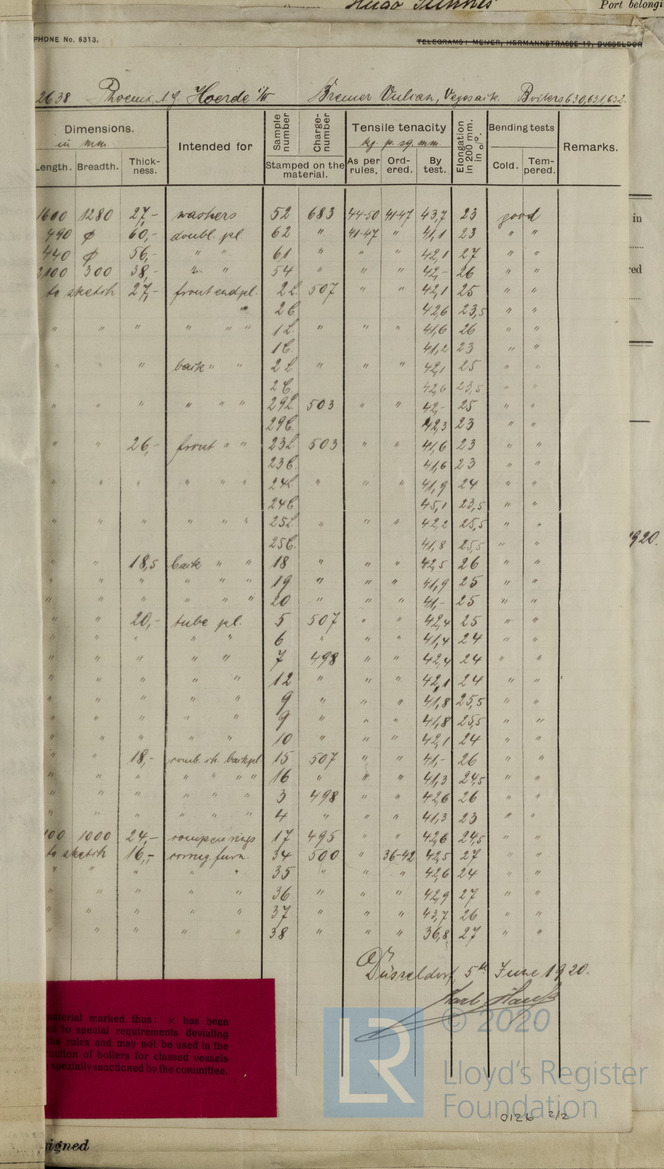 Hugo Stinnes
Port belongi
PHONE No. 6313.
TELEGRAMS: MEIJER, HERMANNSTRASSE 19, DUSSELDOR
2638 Phoenix, AG Hoerde i/W Bremer Vulkan, Vegesack. Boilers 630,631,632.
Dimensions. in mm.
Length. Breadth. Thickness.
Intended for
Sample number
Charge-number
Stamped on the material.
Tensile tenacity kg. p. sq. mm
As per rules, Ordered. By test.
Elongation in 200 mm. in o/o.
Bending tests
Cold. Tempered.
Remarks.
1600 1280 27,- washers 52 683 44-50 41-47 43,7 23 good
490 ϕ 60,- doubl. pl 62 " 41-47 " 41,1 23 " "
440 ϕ 56,- " " 61 " " " 42,1 27 " "
300 38,- " " 54 " " " 42,- 26 " "
to sketch 27,- front end pl. 2L 507 " " 42,1 25 " "
2C 42,6 23,5 " "
" " " " " " 1L " " " 41,6 26 " "
1C 41,2 23 " "
" " " back " " 2L " " " 42,1 25 " "
2C 42,6 23,5 " "
" " " " " " 29L 503 " " 42,- 25 " "
29C 42,3 23 " "
" " 26,- front " " 23L 503 " " 41,6 23 " "
23C 41,6 23 " "
" " " " " " 24L " " " 41,9 24 " "
24C 45,1 23,5 " "
" " " " " " 25L " " " 42,2 25,5 " "
25C 41,8 25,5 " "
" " 18,5 back " " 18 " " " 42,5 26 " "
" " " " " " 19 " " " 41,9 25 " "
" " " " " " 20 " " " 41,- 25 " "
" " 20,- tube pl. 5 507 " " 42,4 25 " "
" " " " " 6 " " " 41,4 24 " "
" " " " " 7 498 " " 42,4 24 " "
" " " " " 12 " " " 42,1 24 " "
" " " " " 9 " " " 41,8 25,5 " "
" " " " " 9 " " " 41,8 25,5 " "
" " " " " 10 " " " 42,1 24 " "
" " 18,- comb. ch. back pl 15 507 " " 41,- 26 " "
" " " " " " " 16 " " " 41,3 24,5 " "
" " " " " " " 3 498 " " 42,6 26 " "
" " " " " " " 4 " " " 41,3 23 " "
1000 24,- rings 17 495 " " 42,6 24,5 " "
to sketch 16,- furn. 34 500 " 36-42 42,5 27 " "
" " " " " 35 " " " 42,6 24 " "
" " " " " 36 " " " 42,9 27 " "
" " " " " 37 " " " 43,7 26 " "
" " " " " 38 " " " 36,8 27 " "
Düsseldorf, 5th June 1920.
aterial marked thus: × has been
to special requirements deviating
the rules and may not be used in the
uction of boilers for classed vessels
specially sanctioned by the committee.
in
ed
1920.
LR
© 2020
Lloyd's Register
Foundation
0126 2/2
signed